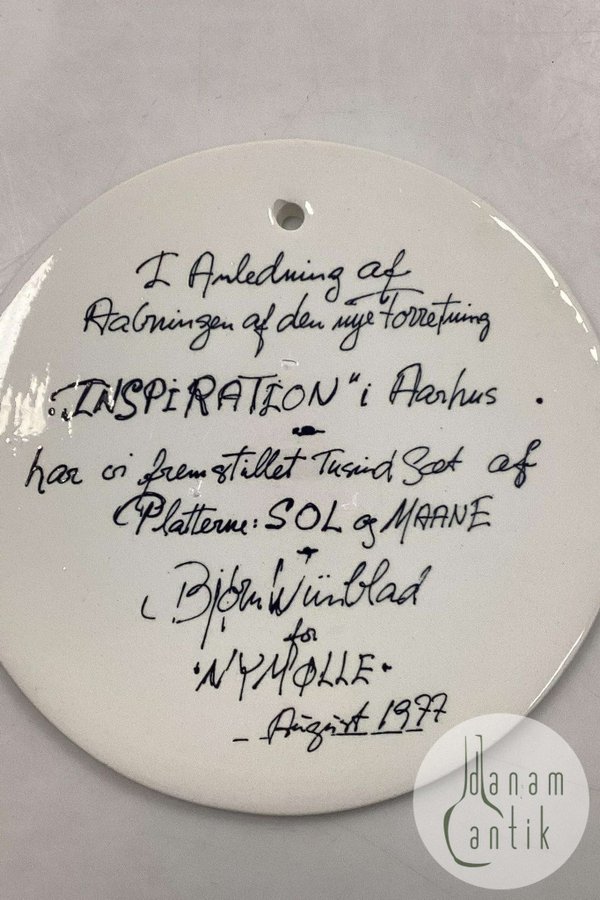 I Anledning af
Aabningen af den nye Forretning
"INSPIRATION" i Aarhus .
har vi fremstillet Tusind Sæt af
Platterne: SOL og MAANE
Bjørn Wiinblad
for
"NYMØLLE"
- August 1977
danam
antik